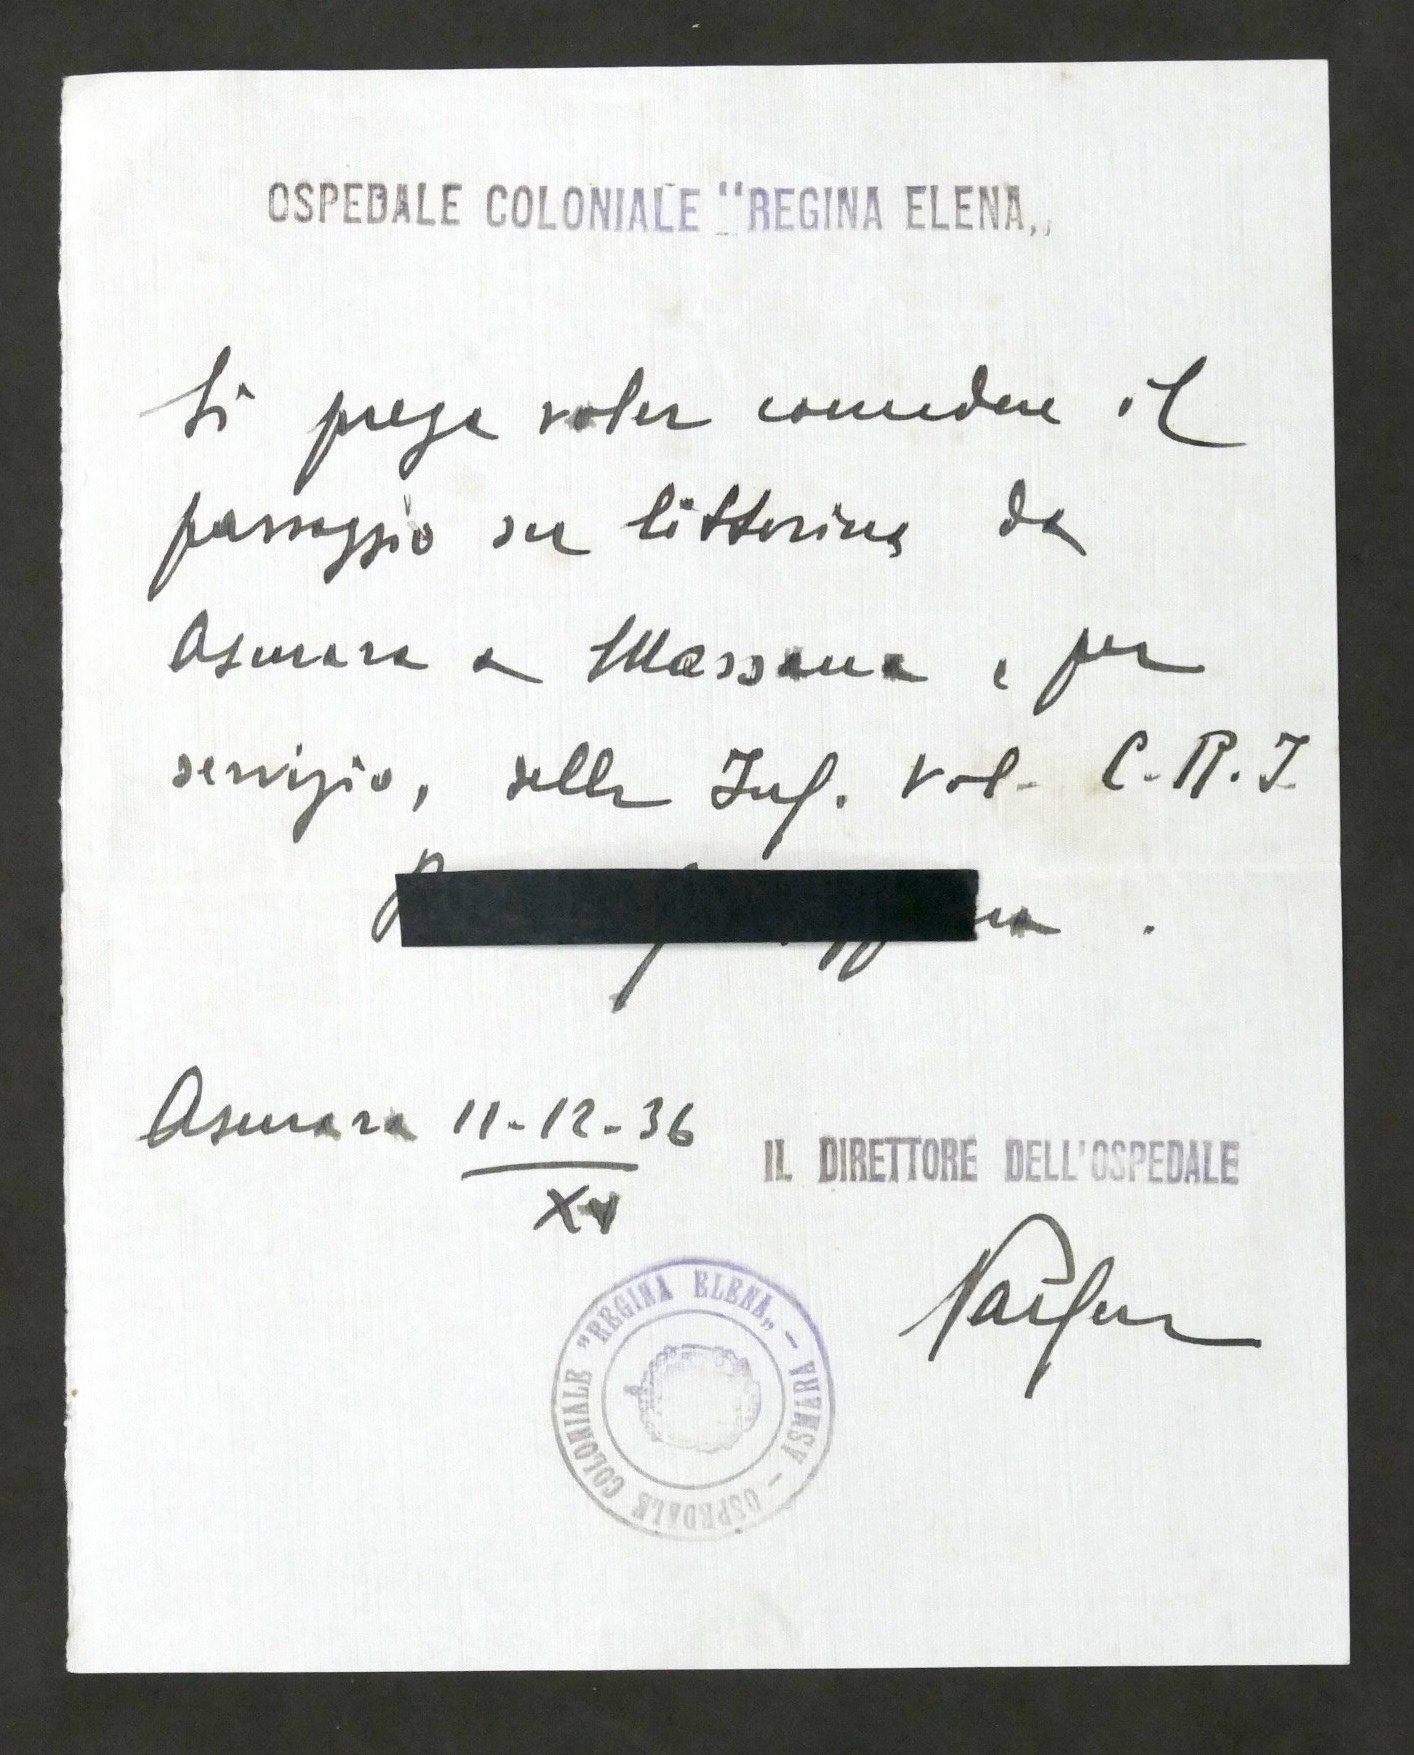 OSPEDALE COLONIALE "REGINA ELENA„
Si prega voler concedere il
passaggio su littorina da
Asmara a Massaua e per
servizio, della Inf. Vol. C.R.I.
Asmara 11-12-36
XV
IL DIRETTORE DELL'OSPEDALE
OSPEDALE COLONIALE "REGINA ELENA„ - ASMARA -